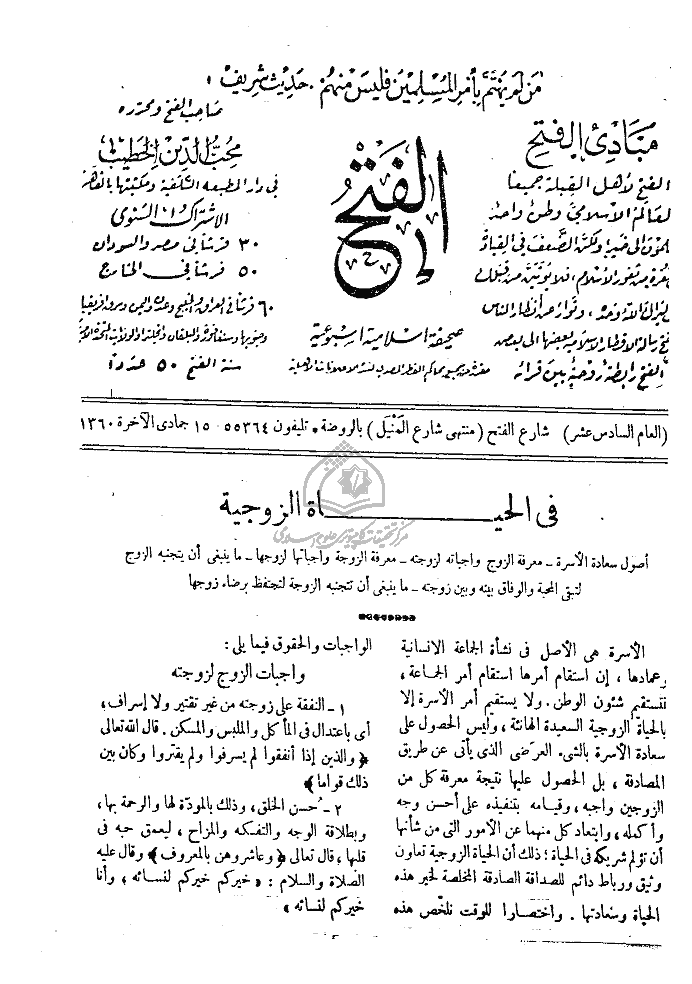 من لم يهتم بأمر المسلمين فليس منهم . حديث شريف
مبادئ الفتح
الفتح لأهل القبلة جميعا
العالم الاسلامي وطن واحد
الفتح رابطة روحية بين قرائه
الفتح
صحيفة اسلامية اسبوعية
صاحب الفتح ومحرره
محب الدين الخطيب
في دار المطبعة السلفية ومكتبتها بالقاهرة
الاشتراك السنوى
٣٠ قرشا فى مصر والسودان
٥٠ قرشا فى الخارج
سنة الفتح ٥٠ عددا
(العام السادس عشر) شارع الفتح (منتهى شارع المَنْيَل) بالروضة • تليفون ٥٥٣٦٤ ١٥ جمادى الآخرة ١٣٦٠
فى الحيــــــاة الزوجية
أصول سعادة الأسرة ــ معرفة الزوج واجباته لزوجته ــ معرفة الزوجة واجباتها لزوجها ــ ما ينبغى أن يتجنبه الزوج
لتبقى المحبة والوفاق بينه وبين زوجته ــ ما ينبغى أن تتجنبه الزوجة لتحتفظ برضاء زوجها
الأسرة هى الأصل فى نشأة الجماعة الانسانية
وعمادها ، إن استقام أمرها استقام أمر الجماعة ،
فتستقيم شئون الوطن . ولا يستقيم أمر الأسرة إلا
بالحياة الزوجية السعيدة الهانئة ، وليس الحصول على
سعادة الأسرة بالشىء العرَضى الذى يأتى عن طريق
المصادفة ، بل الحصول عليها نتيجة معرفة كل من
الزوجين واجبه ، وقيامه بتنفيذه على أحسن وجه
وأكمله ، وابتعاد كل منهما عن الأمور التى من شأنها
أن تؤلم شريكه فى الحياة ؛ ذلك أن الحياة الزوجية تعاون
وثيق ورباط دائم للصداقة الصادقة المخلصة لخير هذه
الحياة وسعادتها . واختصارا للوقت نلخّص هذه
الواجبات والحقوق فيما يلى :
واجبات الزوج لزوجته
١ ــ النفقة على زوجته من غير تقتير ولا إسراف ،
أى باعتدال فى المأكل والملبس والمسكن . قال الله تعالى
﴿ والذين إذا أنفقوا لم يسرفوا ولم يقتروا وكان بين
ذلك قواما ﴾
٢ ــ حُسن الخلق ، وذلك بالمودّة لها والرحمة بها ،
وبطلاقة الوجه والتفكه والمزاح ، ليعمق حبه فى
قلبها ، قال تعالى ﴿ وعاشروهن بالمعروف ﴾ وقال عليه
الصلاة والسلام : « خيركم خيركم لنسائه ، وأنا
خيركم لنسائه »